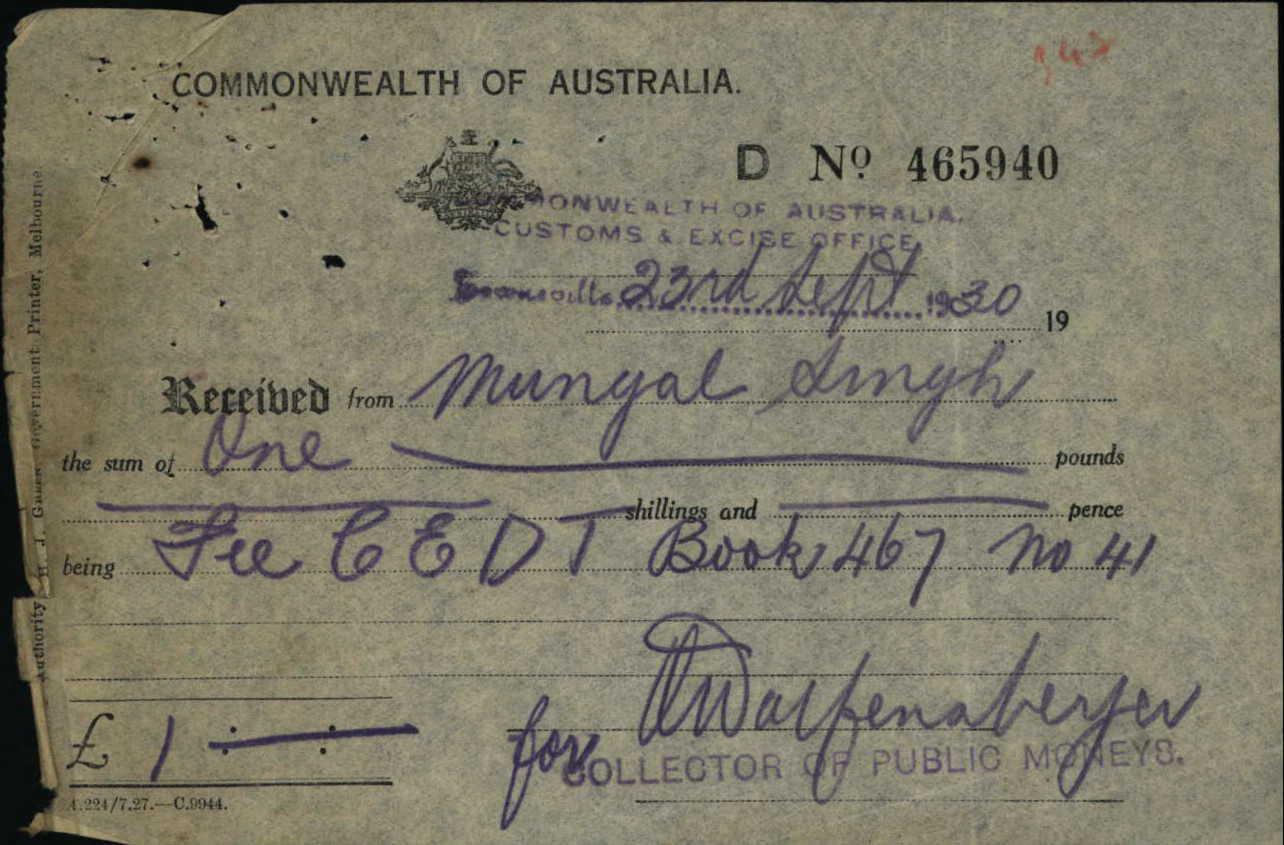 COMMONWEALTH OF AUSTRALIA.
D Nº 465940
COMMONWEALTH OF AUSTRALIA.
CUSTOMS & EXCISE OFFICE,
Townsville 23rd Sept 1930
19
Received from Mungal Singh
the sum of One pounds
shillings and pence
being Fee C E D T Book 467 No 41
£ 1 : :
for
COLLECTOR OF PUBLIC MONEYS.
A.224/7.27.—C.9944.
Authority H. J. Green Government Printer, Melbourne